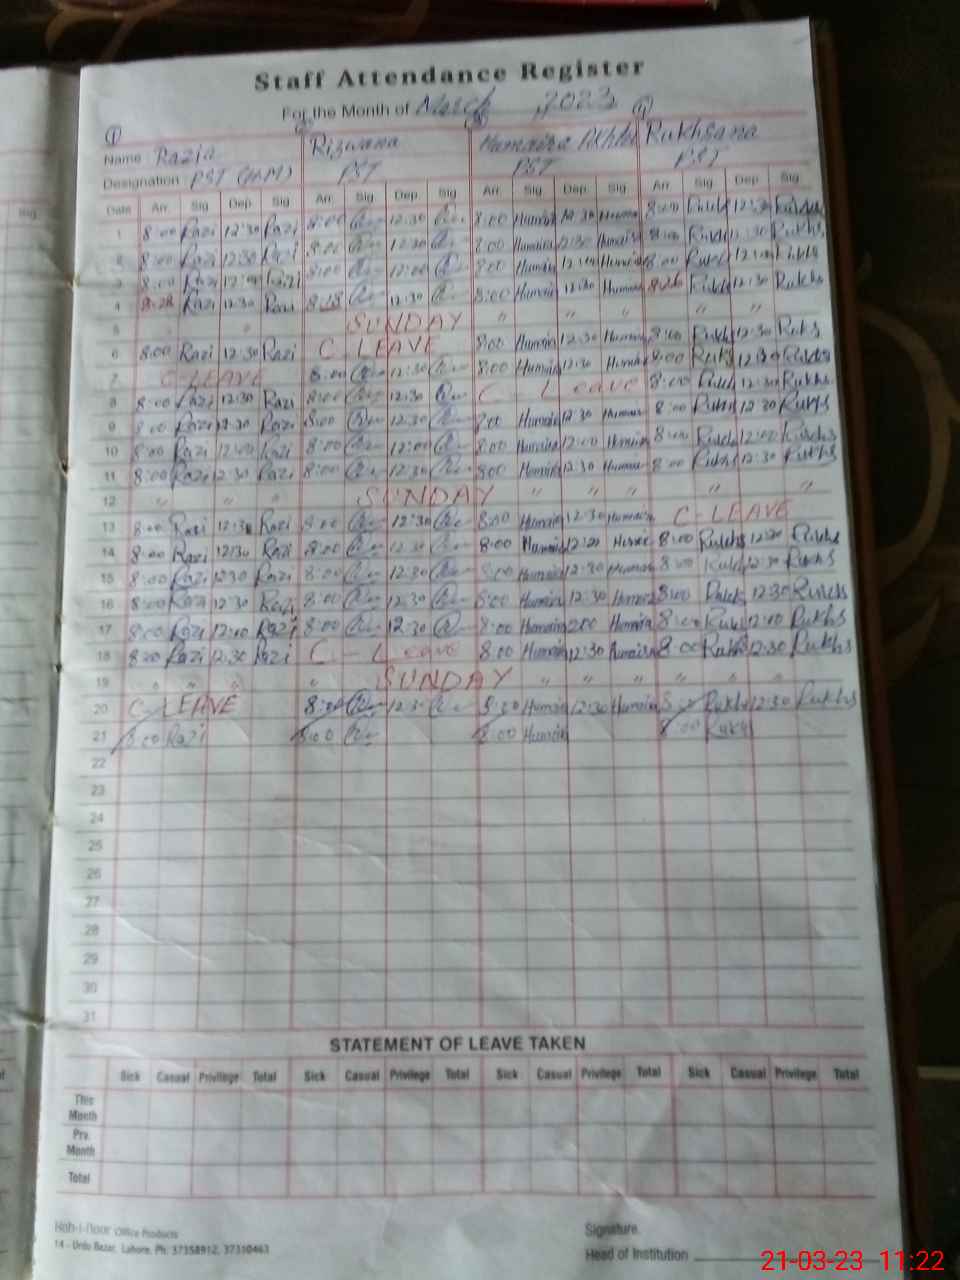 Staff Attendance Register
For the Month of March 2023
Name Razia Rizwana Humaira Rukhsana
Designation PST (H.M) PST PST PST
Date Arr. Sig. Dep. Sig. Arr. Sig. Dep. Sig. Arr. Sig. Dep. Sig. Arr. Sig. Dep. Sig.
1 8:00 Razi 12:30 Razi 8:00 12:30 8:00 Humaira 12:30 Humaira 8:00 Rukh 12:30
2 8:00 Razi 12:30 Razi 8:00 12:30 8:00 Humaira 12:30 Humaira 8:00 Rukh 12:30 Rukhs
3 8:00 Razi Razi 8:00 12:00 8:00 Humaira Humaira 8:00 Rukh
4 8:28 Razi 12:30 Razi 8:28 12:30 8:00 Humaira 12:30 Humaira 8:26 Rukh 12:30 Rukhs
5 " SUNDAY " " " " "
6 8:00 Razi 12:30 Razi C-LEAVE 8:00 Humaira 12:30 Humaira 8:00 Rukh 12:30 Rukhs
7 C-LEAVE 8:00 12:30 8:00 Humaira 12:30 Humaira 8:00 Rukh 12:30 Rukhs
8 8:00 Razi 12:30 Razi 8:00 12:30 C-Leave 8:00 Rukh 12:30 Rukhs
9 8:00 Razi 12:30 Razi 8:00 12:30 8:00 Humaira 12:30 Humaira 8:00 Rukhs 12:30 Rukhs
10 8:00 Razi 12:00 Razi 8:00 12:00 8:00 Humaira 12:00 Humaira 8:00 Rukh 12:00 Rukhs
11 8:00 Razi 12:30 Razi 8:00 12:30 8:00 Humaira 12:30 Humaira 8:00 Rukhs 12:30 Rukhs
12 " " " SUNDAY " " " " "
13 8:00 Razi 12:30 Razi 8:00 12:30 8:00 Humaira 12:30 Humaira C-LEAVE
14 8:00 Razi 12:30 Razi 8:00 12:30 8:00 Humaira 8:00 Rukhs Rukhs
15 8:00 Razi 12:30 Razi 8:00 12:30 8:00 Humaira 12:30 Humaira 8:00 Rukh 12:30 Rukhs
16 8:00 Razi 12:30 Razi 8:00 12:30 8:00 Humaira 12:30 Humaira 8:00 Rukh 12:30 Rukhs
17 8:00 Razi 12:00 Razi 8:00 12:30 8:00 Humaira Humaira 8:00 Rukh 12:00 Rukhs
18 8:00 Razi 12:30 Razi C-Leave 8:00 Humaira 12:30 Humaira 8:00 Rukhs 12:30 Rukhs
19 " " " " SUNDAY " " " " " "
20 C-LEAVE 8:30 12:30 8:30 Humaira 12:30 Humaira Rukhs 12:30 Rukhs
21 8:00 Razi 8:00 8:00 Humaira 8:00 Rukhs
22
23
24
25
26
27
28
29
30
31
STATEMENT OF LEAVE TAKEN
Sick Casual Privilege Total Sick Casual Privilege Total Sick Casual Privilege Total Sick Casual Privilege Total
This Month
Prv. Month
Total
Koh-i-Noor Office Products
14 - Urdu Bazar, Lahore. Ph: 37358912, 37310463
Signature
Head of Institution
21-03-23 11:22